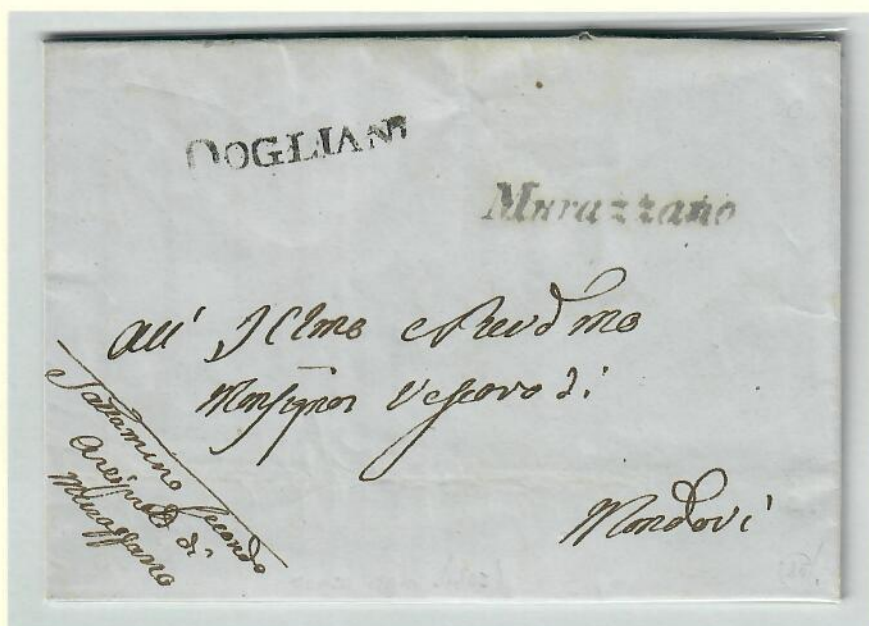 DOGLIANI
Murazzano
All' Illmo e Revdmo
Monsignor Vescovo di
Mondovì
Secondo
di
Murazzano